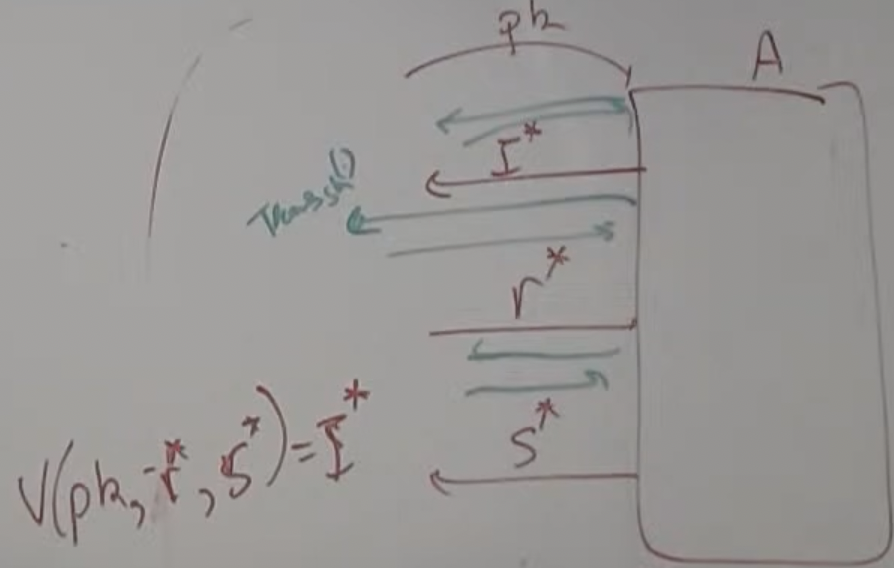 pk
A
I*
Trans_sk(·)
r*
s*
V(pk, r*, s*) = I*